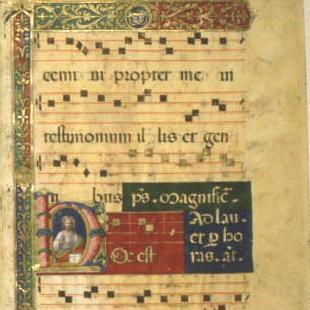 cemi ni propter me in
testimonium il lis et gen
ti bus ps. magnific̄.
Ad lau.
et ꝑ ho
Oc est ras. at.